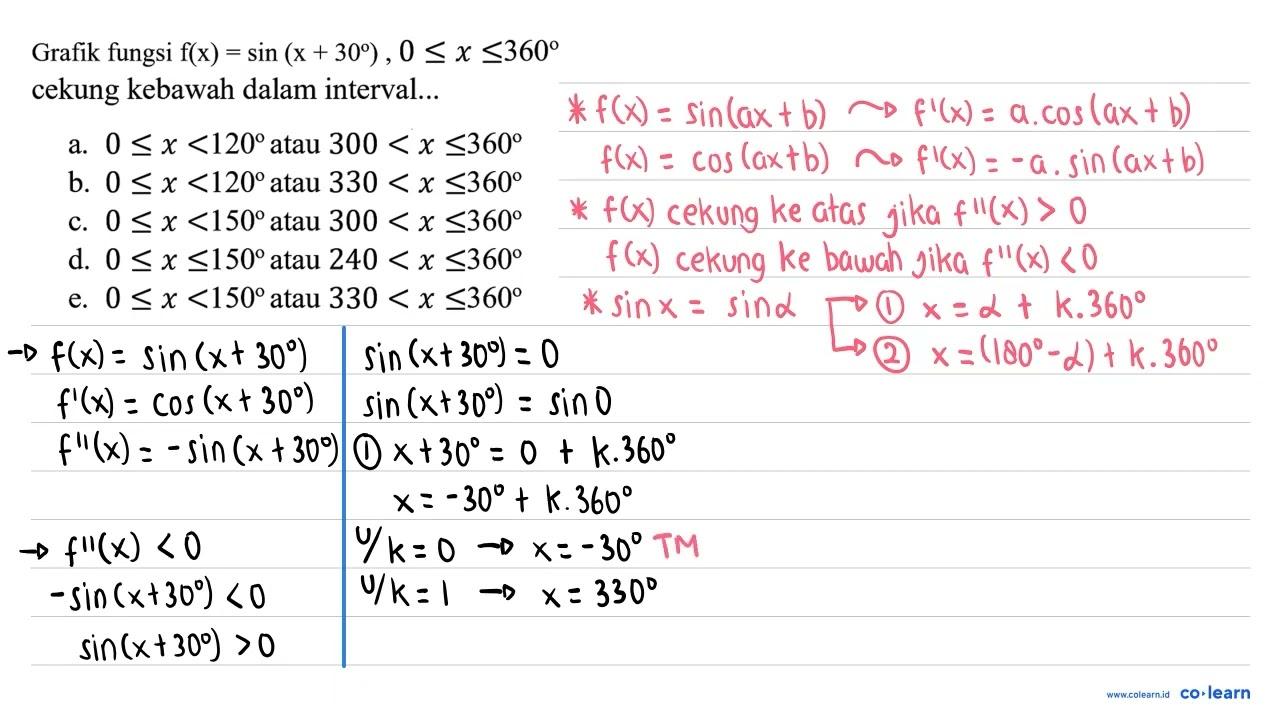 Grafik fungsi f(x) = sin (x + 30º) , 0 ≤ x ≤360º
cekung kebawah dalam interval...
a. 0 ≤ x <120º atau 300 < x ≤360º
b. 0 ≤ x <120º atau 330 < x ≤360º
c. 0 ≤ x <150º atau 300 < x ≤360º
d. 0 ≤ x ≤150º atau 240 < x ≤360º
e. 0 ≤ x <150º atau 330 < x ≤360º
* f(x) = sin(ax + b) ⇝ f'(x) = a.cos(ax + b)
f(x) = cos(ax+b) ⇝ f'(x) = -a . sin(ax+b)
* f(x) cekung ke atas jika f"(x) > 0
f(x) cekung ke bawah jika f"(x) < 0
* sin x = sin α → ① x = α + k.360°
→ ② x = (180° - α) + k.360°
→ f(x) = sin(x + 30°)
f'(x) = cos(x + 30°)
f"(x) = -sin(x + 30°)
→ f"(x) < 0
-sin(x+30°) < 0
sin(x+30°) > 0
sin(x+30°) = 0
sin(x+30°) = sin 0
① x+30° = 0 + k.360°
x = -30° + k.360°
u/k = 0 → x = -30° TM
u/k = 1 → x = 330°
www.colearn.id co·learn